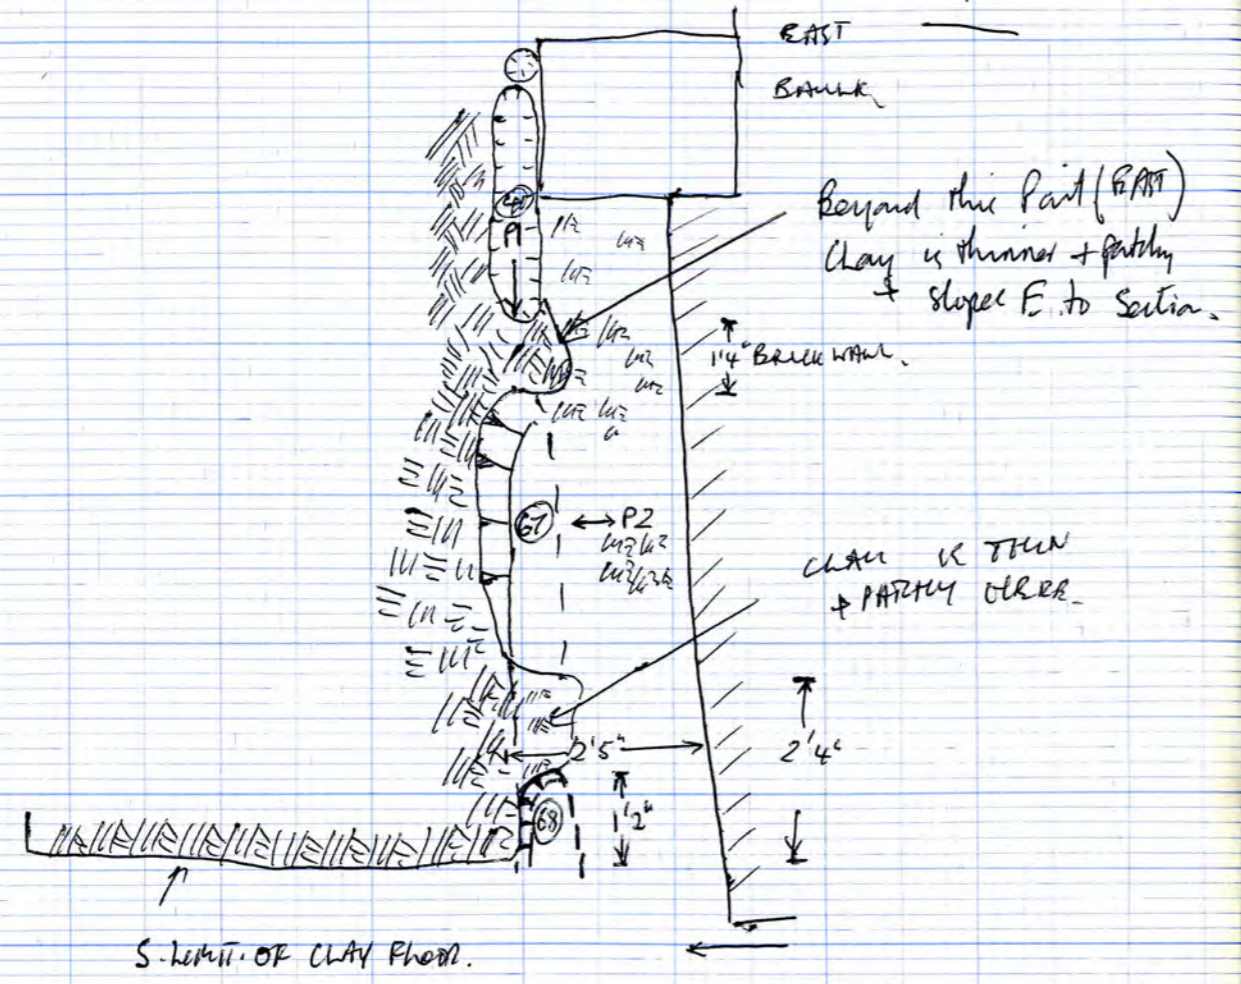 EAST
BAULK
Beyond this Point (EAST)
Clay is thinner + patchy
+ slopes E. to Section.
P1
1'4" BRICK WALL.
67
P2
CLAY IS THIN
+ PATCHY HERE.
2'5"
2'4"
68
1'2"
S. LIMIT. OF CLAY FLOOR.